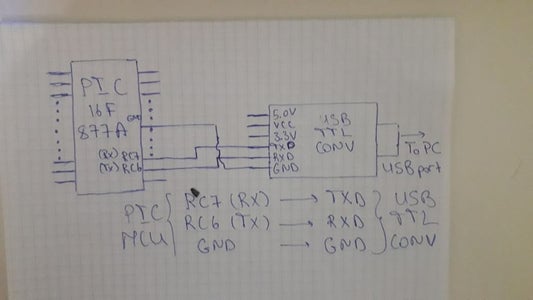 PIC
16F
877A
GND
(RX) RC7
(TX) RC6
5.0V
VCC
3.3V
TXD
RXD
GND
USB
TTL
CONV
To PC
USB port
PIC
MCU
RC7 (RX) → TXD
RC6 (TX) → RXD
GND → GND
USB
TTL
CONV